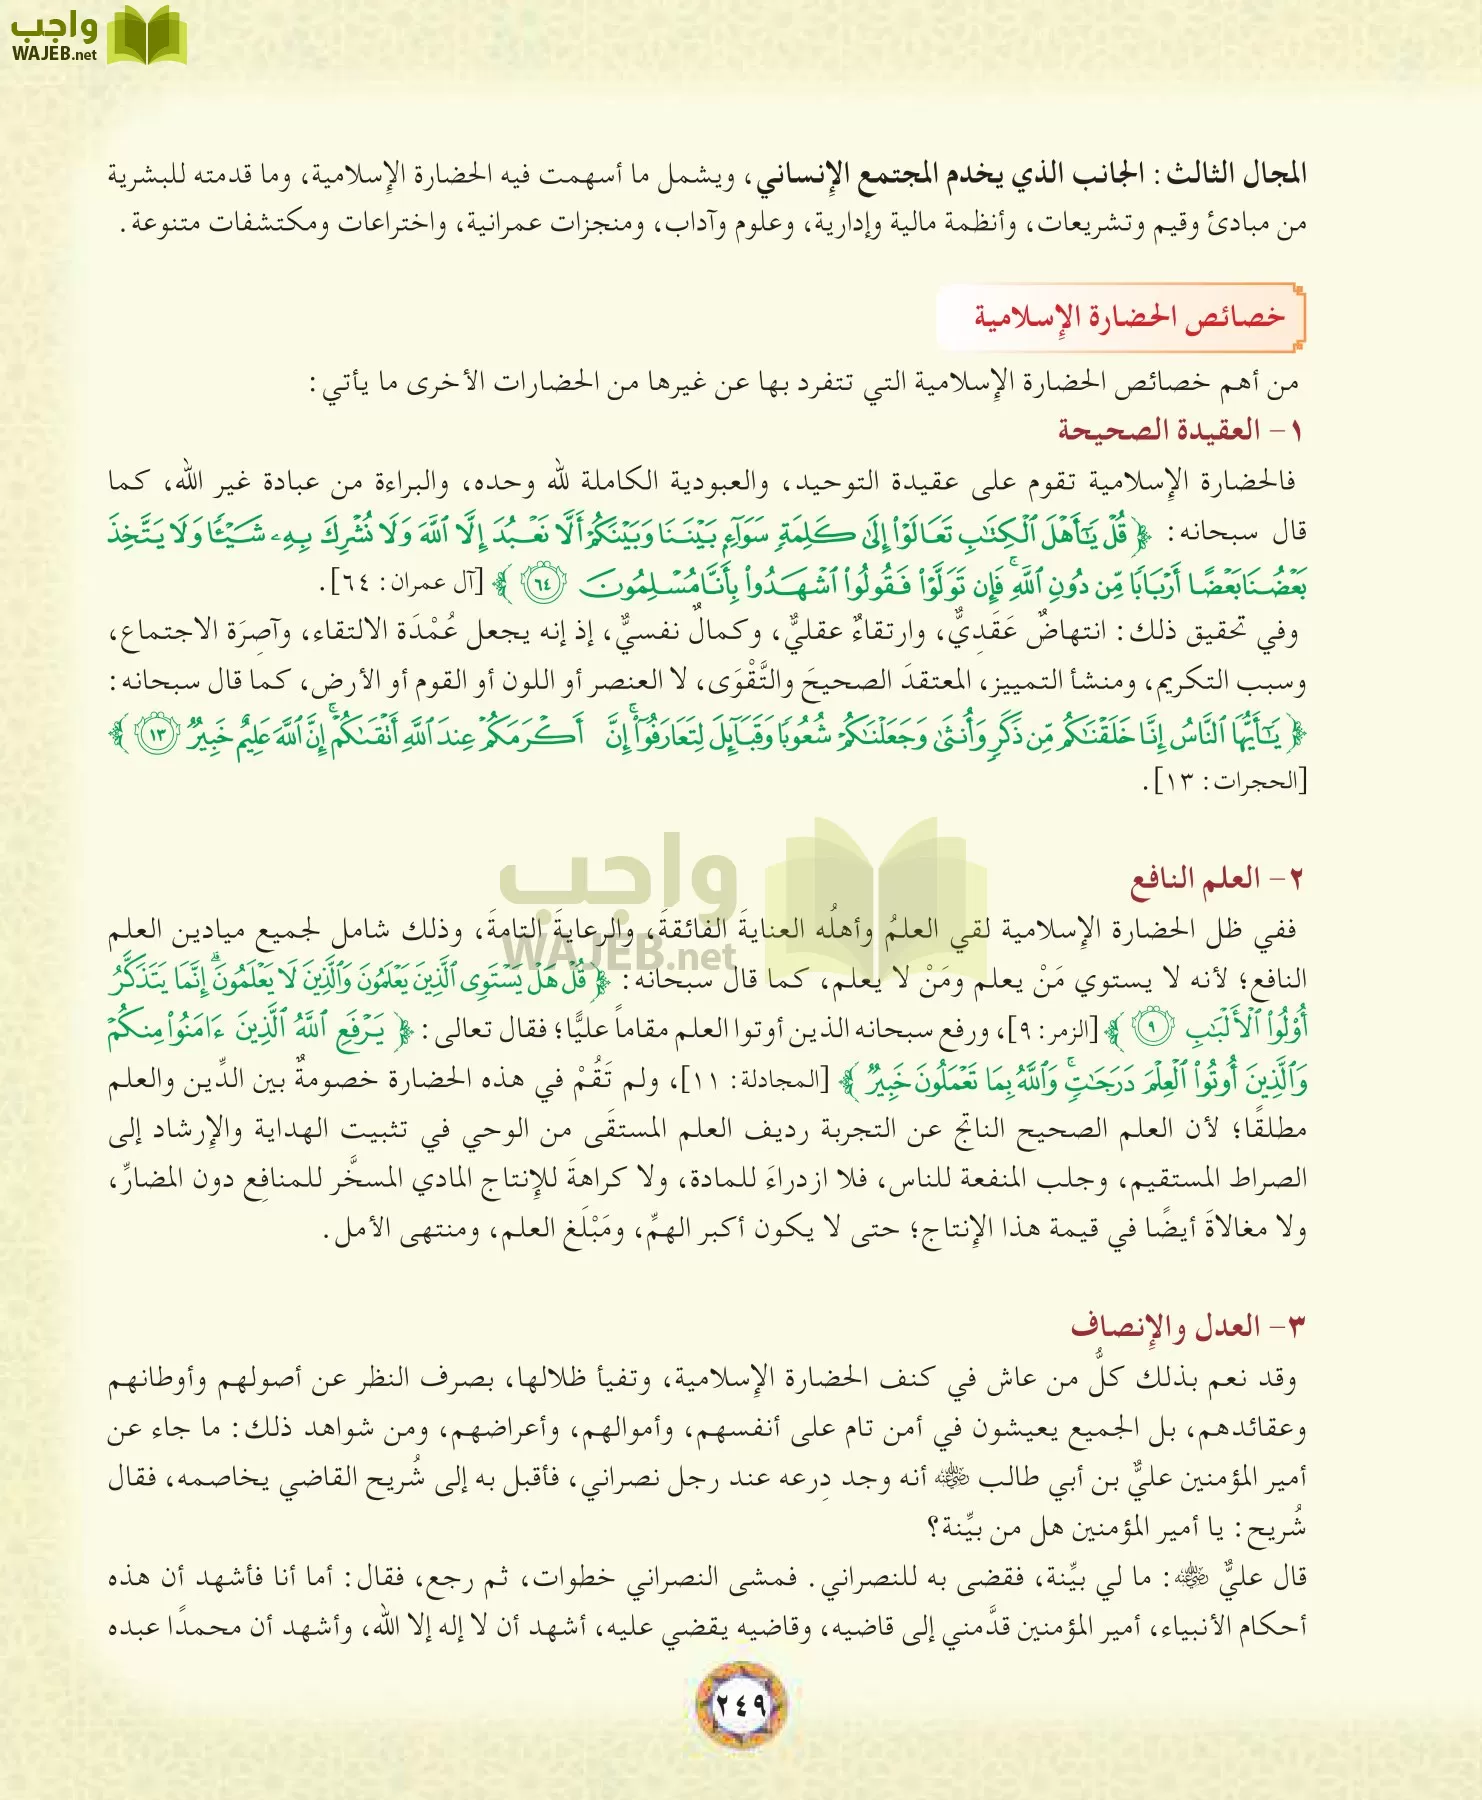 واجب
WAJEB.net
المجال الثالث: الجانب الذي يخدم المجتمع الإنساني، ويشمل ما أسهمت فيه الحضارة الإسلامية، وما قدمته للبشرية
من مبادئ وقيم وتشريعات، وأنظمة مالية وإدارية، وعلوم وآداب، ومنجزات عمرانية، واختراعات ومكتشفات متنوعة.
خصائص الحضارة الإسلامية
من أهم خصائص الحضارة الإسلامية التي تتفرد بها عن غيرها من الحضارات الأخرى ما يأتي:
١- العقيدة الصحيحة
فالحضارة الإسلامية تقوم على عقيدة التوحيد، والعبودية الكاملة لله وحده، والبراءة من عبادة غير الله، كما
قال سبحانه: ﴿ قُلْ يَٰٓأَهْلَ ٱلْكِتَٰبِ تَعَالَوْا۟ إِلَىٰ كَلِمَةٍ سَوَآءٍۭ بَيْنَنَا وَبَيْنَكُمْ أَلَّا نَعْبُدَ إِلَّا ٱللَّهَ وَلَا نُشْرِكَ بِهِۦ شَيْـًٔا وَلَا يَتَّخِذَ
بَعْضُنَا بَعْضًا أَرْبَابًا مِّن دُونِ ٱللَّهِ ۚ فَإِن تَوَلَّوْا۟ فَقُولُوا۟ ٱشْهَدُوا۟ بِأَنَّا مُسْلِمُونَ ٦٤ ﴾ [آل عمران: ٦٤].
وفي تحقيق ذلك: انتهاضٌ عَقَديٌّ، وارتقاءٌ عقليٌّ، وكمالٌ نفسيٌّ، إذ إنه يجعل عُمْدَة الالتقاء، وآصِرَة الاجتماع،
وسبب التكريم، ومنشأ التمييز، المعتقدَ الصحيحَ والتَّقْوَى، لا العنصر أو اللون أو القوم أو الأرض، كما قال سبحانه:
﴿ يَٰٓأَيُّهَا ٱلنَّاسُ إِنَّا خَلَقْنَٰكُم مِّن ذَكَرٍ وَأُنثَىٰ وَجَعَلْنَٰكُمْ شُعُوبًا وَقَبَآئِلَ لِتَعَارَفُوٓا۟ ۚ إِنَّ أَكْرَمَكُمْ عِندَ ٱللَّهِ أَتْقَىٰكُمْ ۚ إِنَّ ٱللَّهَ عَلِيمٌ خَبِيرٌ ١٣ ﴾
[الحجرات: ١٣].
واجب
WAJEB.net
٢- العلم النافع
ففي ظل الحضارة الإسلامية لقي العلمُ وأهلُه العنايةَ الفائقةَ، والرعايةَ التامةَ، وذلك شامل لجميع ميادين العلم
النافع؛ لأنه لا يستوي مَنْ يعلم ومَنْ لا يعلم، كما قال سبحانه: ﴿ قُلْ هَلْ يَسْتَوِى ٱلَّذِينَ يَعْلَمُونَ وَٱلَّذِينَ لَا يَعْلَمُونَ ۗ إِنَّمَا يَتَذَكَّرُ
أُو۟لُوا۟ ٱلْأَلْبَٰبِ ٩ ﴾ [الزمر: ٩]، ورفع سبحانه الذين أوتوا العلم مقاماً عليًّا؛ فقال تعالى: ﴿ يَرْفَعِ ٱللَّهُ ٱلَّذِينَ ءَامَنُوا۟ مِنكُمْ
وَٱلَّذِينَ أُوتُوا۟ ٱلْعِلْمَ دَرَجَٰتٍ ۚ وَٱللَّهُ بِمَا تَعْمَلُونَ خَبِيرٌ ﴾ [المجادلة: ١١]، ولم تَقُمْ في هذه الحضارة خصومةٌ بين الدِّين والعلم
مطلقًا؛ لأن العلم الصحيح الناتج عن التجربة رديف العلم المستقَى من الوحي في تثبيت الهداية والإرشاد إلى
الصراط المستقيم، وجلب المنفعة للناس، فلا ازدراءَ للمادة، ولا كراهةَ للإنتاج المادي المسخَّر للمنافع دون المضارِّ،
ولا مغالاةَ أيضًا في قيمة هذا الإنتاج؛ حتى لا يكون أكبر الهمِّ، ومَبْلَغ العلم، ومنتهى الأمل.
٣- العدل والإنصاف
وقد نعم بذلك كلُّ من عاش في كنف الحضارة الإسلامية، وتفيأ ظلالها، بصرف النظر عن أصولهم وأوطانهم
وعقائدهم، بل الجميع يعيشون في أمن تام على أنفسهم، وأموالهم، وأعراضهم، ومن شواهد ذلك: ما جاء عن
أمير المؤمنين عليٌّ بن أبي طالب رضي الله عنه أنه وجد دِرعه عند رجل نصراني، فأقبل به إلى شُريح القاضي يخاصمه، فقال
شُريح: يا أمير المؤمنين هل من بيِّنة؟
قال عليٌّ رضي الله عنه: ما لي بيِّنة، فقضى به للنصراني. فمشى النصراني خطوات، ثم رجع، فقال: أما أنا فأشهد أن هذه
أحكام الأنبياء، أمير المؤمنين قدَّمني إلى قاضيه، وقاضيه يقضي عليه، أشهد أن لا إله إلا الله، وأشهد أن محمدًا عبده
٢٤٩